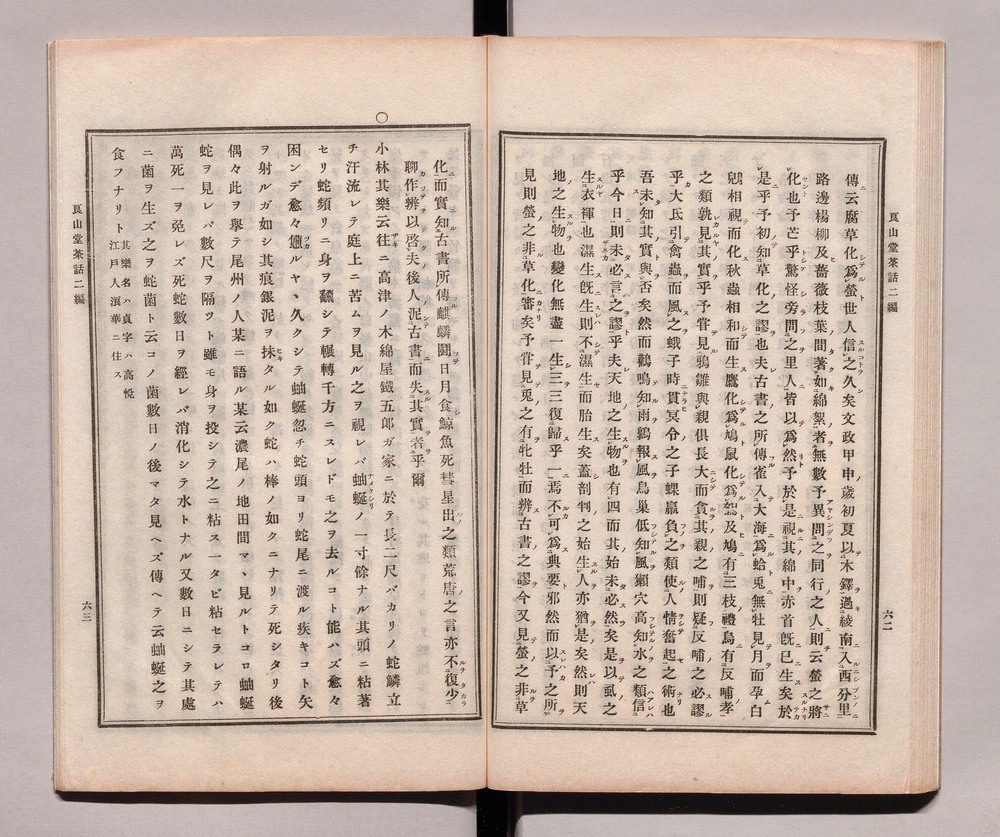 良山堂茶話二編
六二
傳云腐草化爲螢世人信之久矣文政甲申歳初夏以木鐸過綾南入西分里
路邊楊柳及薔薇枝葉間著如綿絮者無數予異問之同行之人則云螢之將
化也予芒乎驚怪旁問之里人皆以爲然予於是視其綿中赤首既已生矣於
是乎予初知草化之謬也夫古書之所傳雀入大海爲蛤兎無牡見月而孕白
鶂相視而化秋蟲相和而生鷹化爲鳩鼠化爲鴽及鳩有三枝禮烏有反哺孝
之類孰見其實乎予甞見鴉雛與親俱長大而貪其親之哺則疑反哺之必謬
乎大氐引禽蟲而風之蛾子時貫冥令之子蜾蠃負之類使人情奮起之術也
吾未知其實與否矣然而鸛鳴知雨鷄報風鳥巢低知風獺穴高知水之類信
乎今日則未必言之謬乎夫天地之生物也有四而其始未必然矣是以虱之
生衣褌也濕生既生則不濕生而胎生矣蓋剖判之始生人亦猶是矣然則天
地之生物也變化無盡一生三三復歸乎一焉不可爲典要邪然而以予之所
見則螢之非草化審矣予甞見兎之有牝牡而辨古書之謬今又見螢之非草
化而實知古書所傳麒麟鬪日月食鯨魚死彗星出之類荒唐之言亦不復少
聊作辨以啓夫後人泥古書而失其實者乎爾
○
小林其樂云往ニ高津ノ木綿屋鐵五郎ガ家ニ於テ長二尺バカリノ蛇鱗立
チ汗流レテ庭上ニ苦ムヲ見ル之ヲ視レバ蛐蜒ノ一寸餘ナル其頭ニ粘著
セリ蛇頻リニ身ヲ飜シテ輾轉千方ニスレドモ之ヲ去ルコト能ハズ愈々
困ンデ愈々憊ルヤヽ久クシテ蛐蜒忽チ蛇頭ヨリ蛇尾ニ渡ル疾キコト矢
ヲ射ルガ如シ其痕銀泥ヲ抹タル如ク蛇ハ棒ノ如クニナリテ死シタリ後
偶々此ヲ擧テ尾州ノ人某ニ語ル某云濃尾ノ地田間マヽ見ルトコロ蛐蜒
蛇ヲ見レバ數尺ヲ隔ツト雖モ身ヲ投シテ之ニ粘ス一タビ粘セラレテハ
萬死一ヲ免レズ死蛇數日ヲ經レバ消化シテ水トナル又數日ニシテ其處
ニ菌ヲ生ズ之ヲ蛇菌ト云コノ菌數日ノ後マタ見ヘズ傳ヘテ云蛐蜒之ヲ
食フナリト其樂名ハ貞字ハ高悅
江戸人浪華ニ住ス
良山堂茶話二編
六三